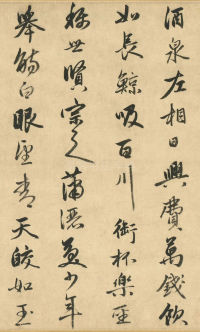 酒泉左相日興費萬錢飲
如長鯨吸百川銜杯樂聖
稱世賢宗之瀟灑美少年
舉觴白眼望青天皎如玉